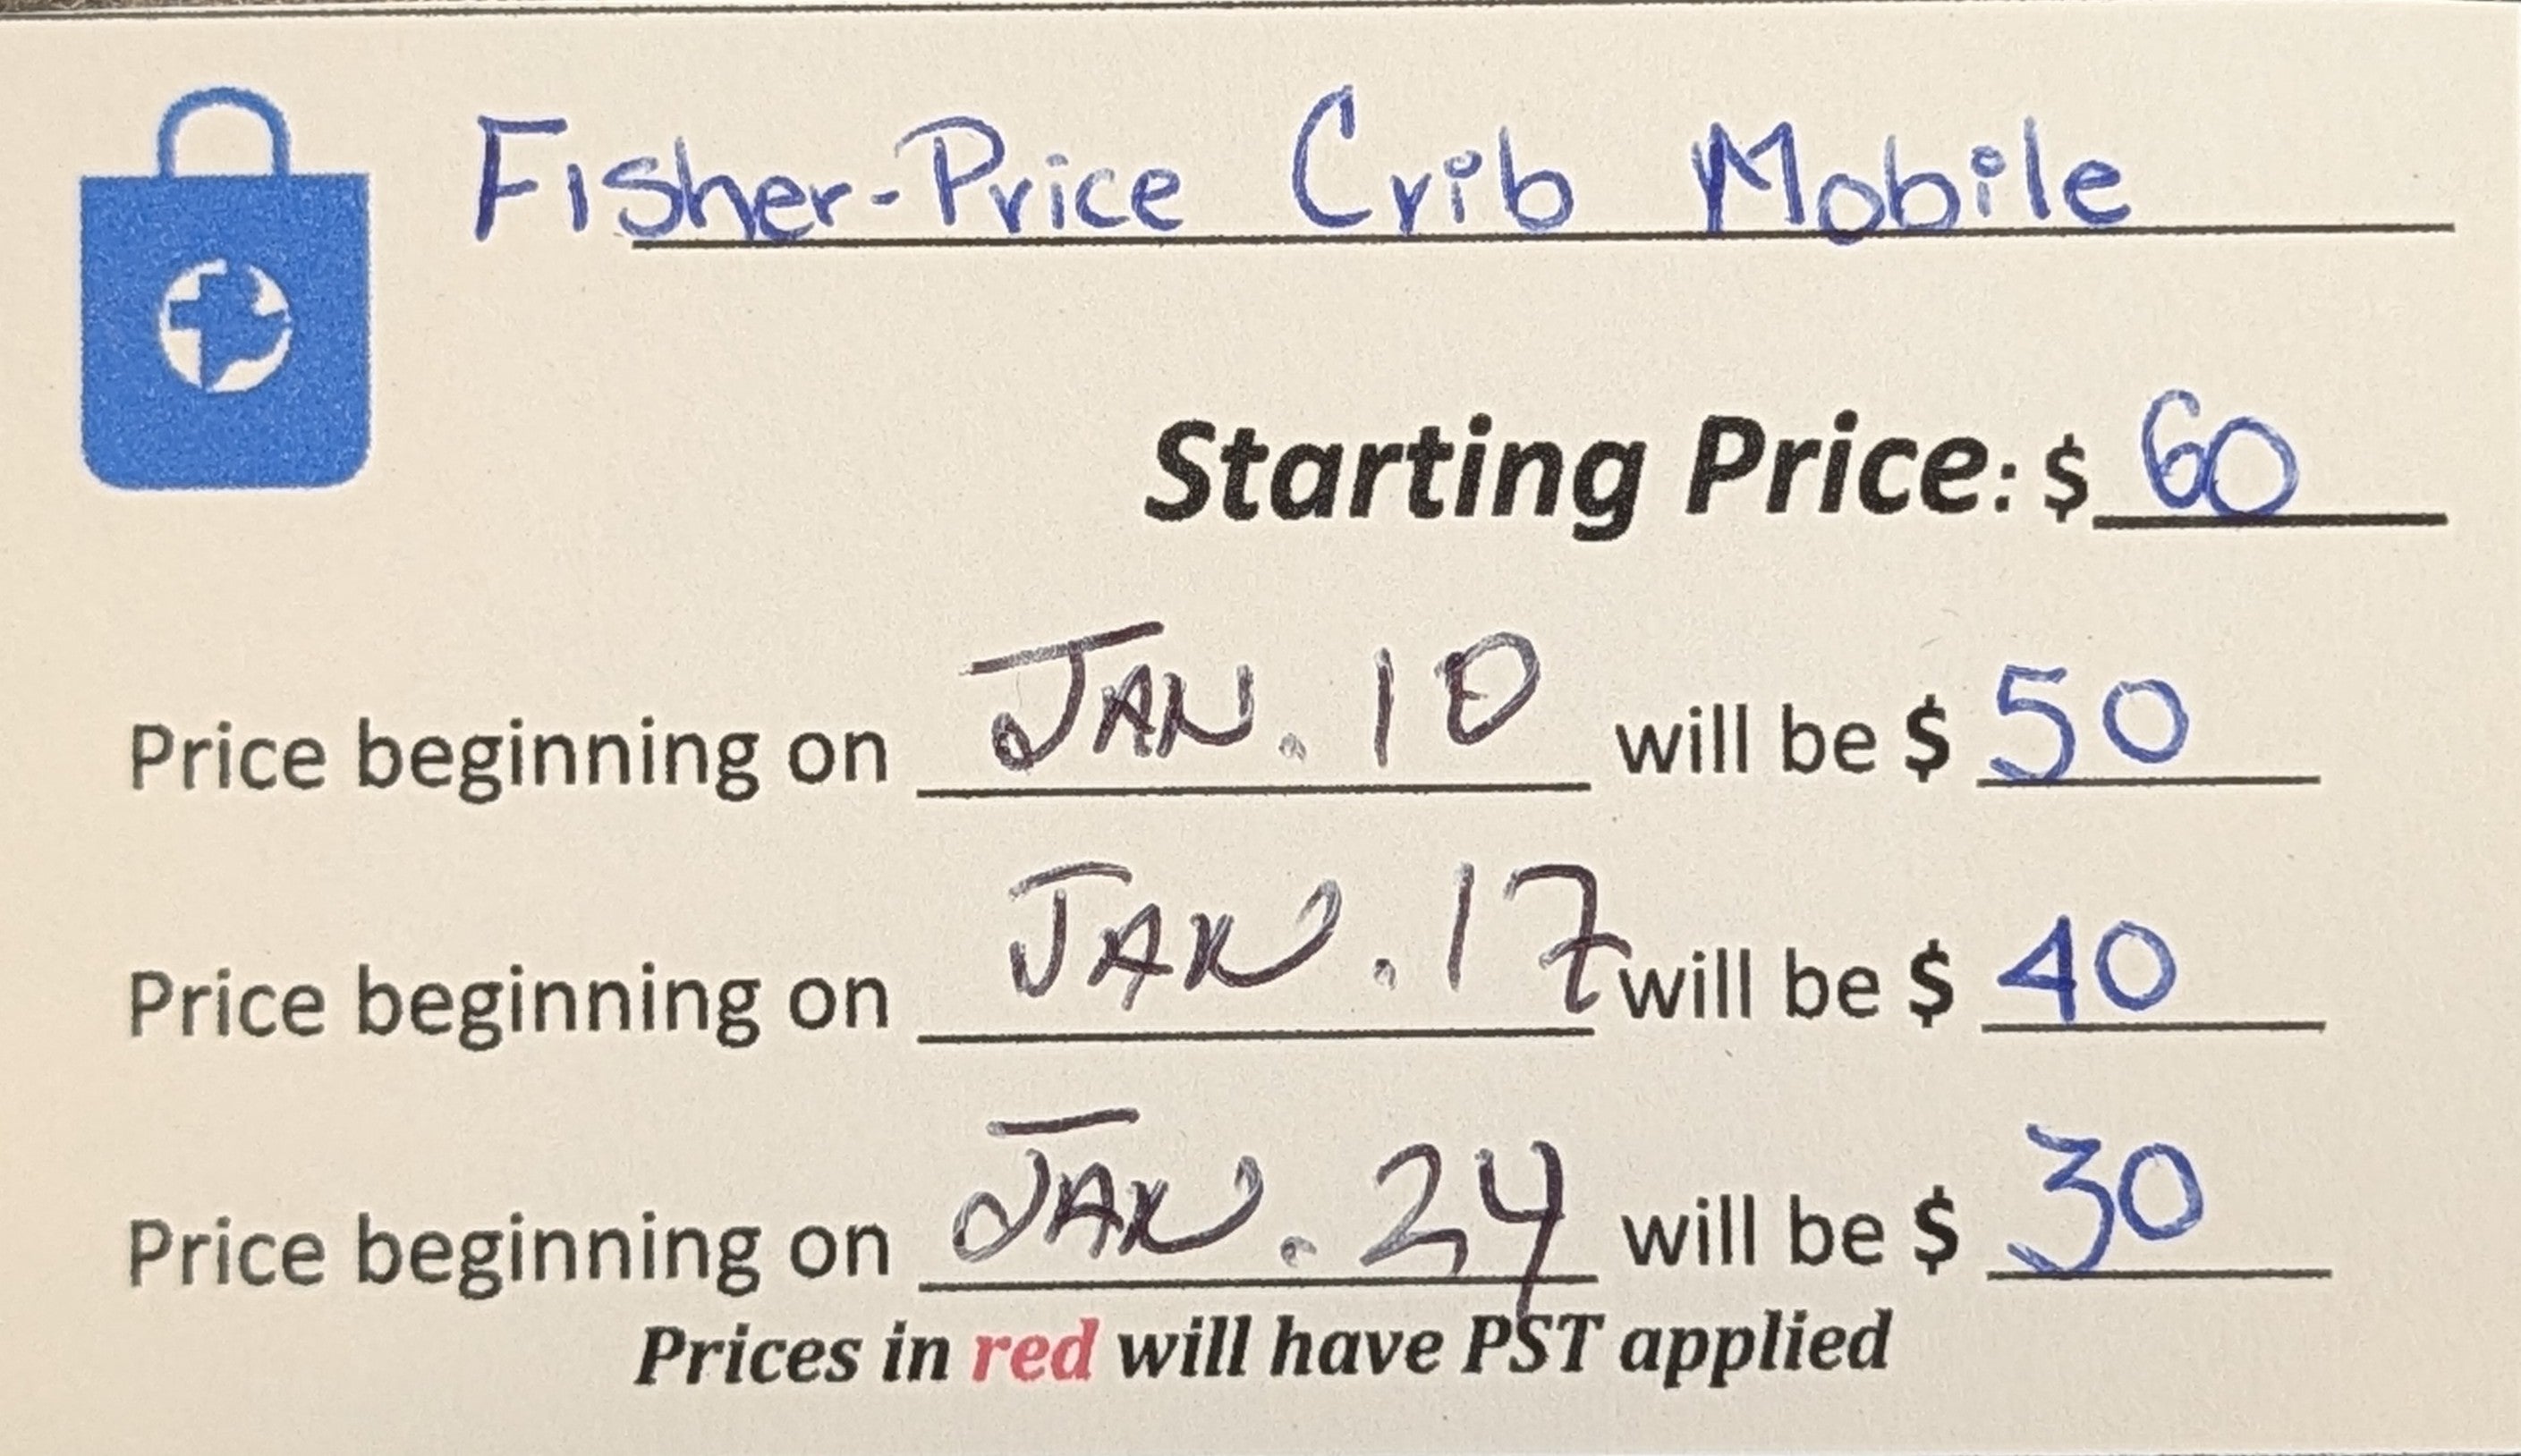 Fisher-Price Crib Mobile
Starting Price: $ 60
Price beginning on JAN. 10 will be $ 50
Price beginning on JAN. 17 will be $ 40
Price beginning on JAN. 24 will be $ 30
Prices in red will have PST applied